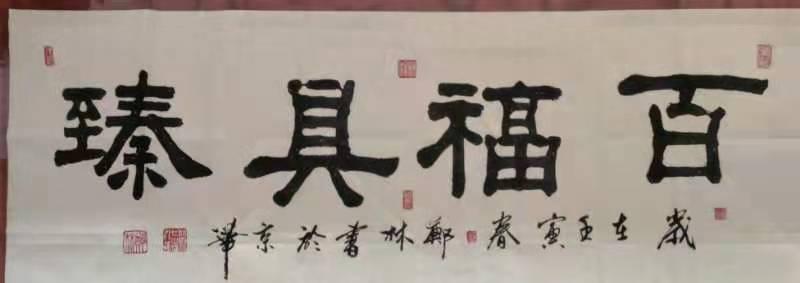 百福具臻
歲在壬寅春鄭林書於京華